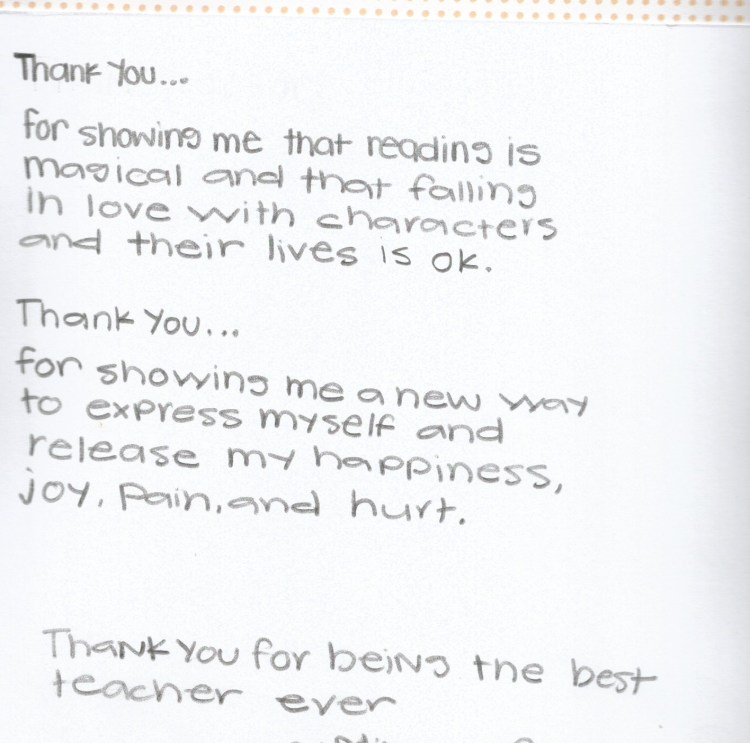 Thank You...
for showing me that reading is
magical and that falling
in love with characters
and their lives is ok.
Thank You...
for showing me a new way
to express myself and
release my happiness,
joy, pain, and hurt.
Thank you for being the best
teacher ever